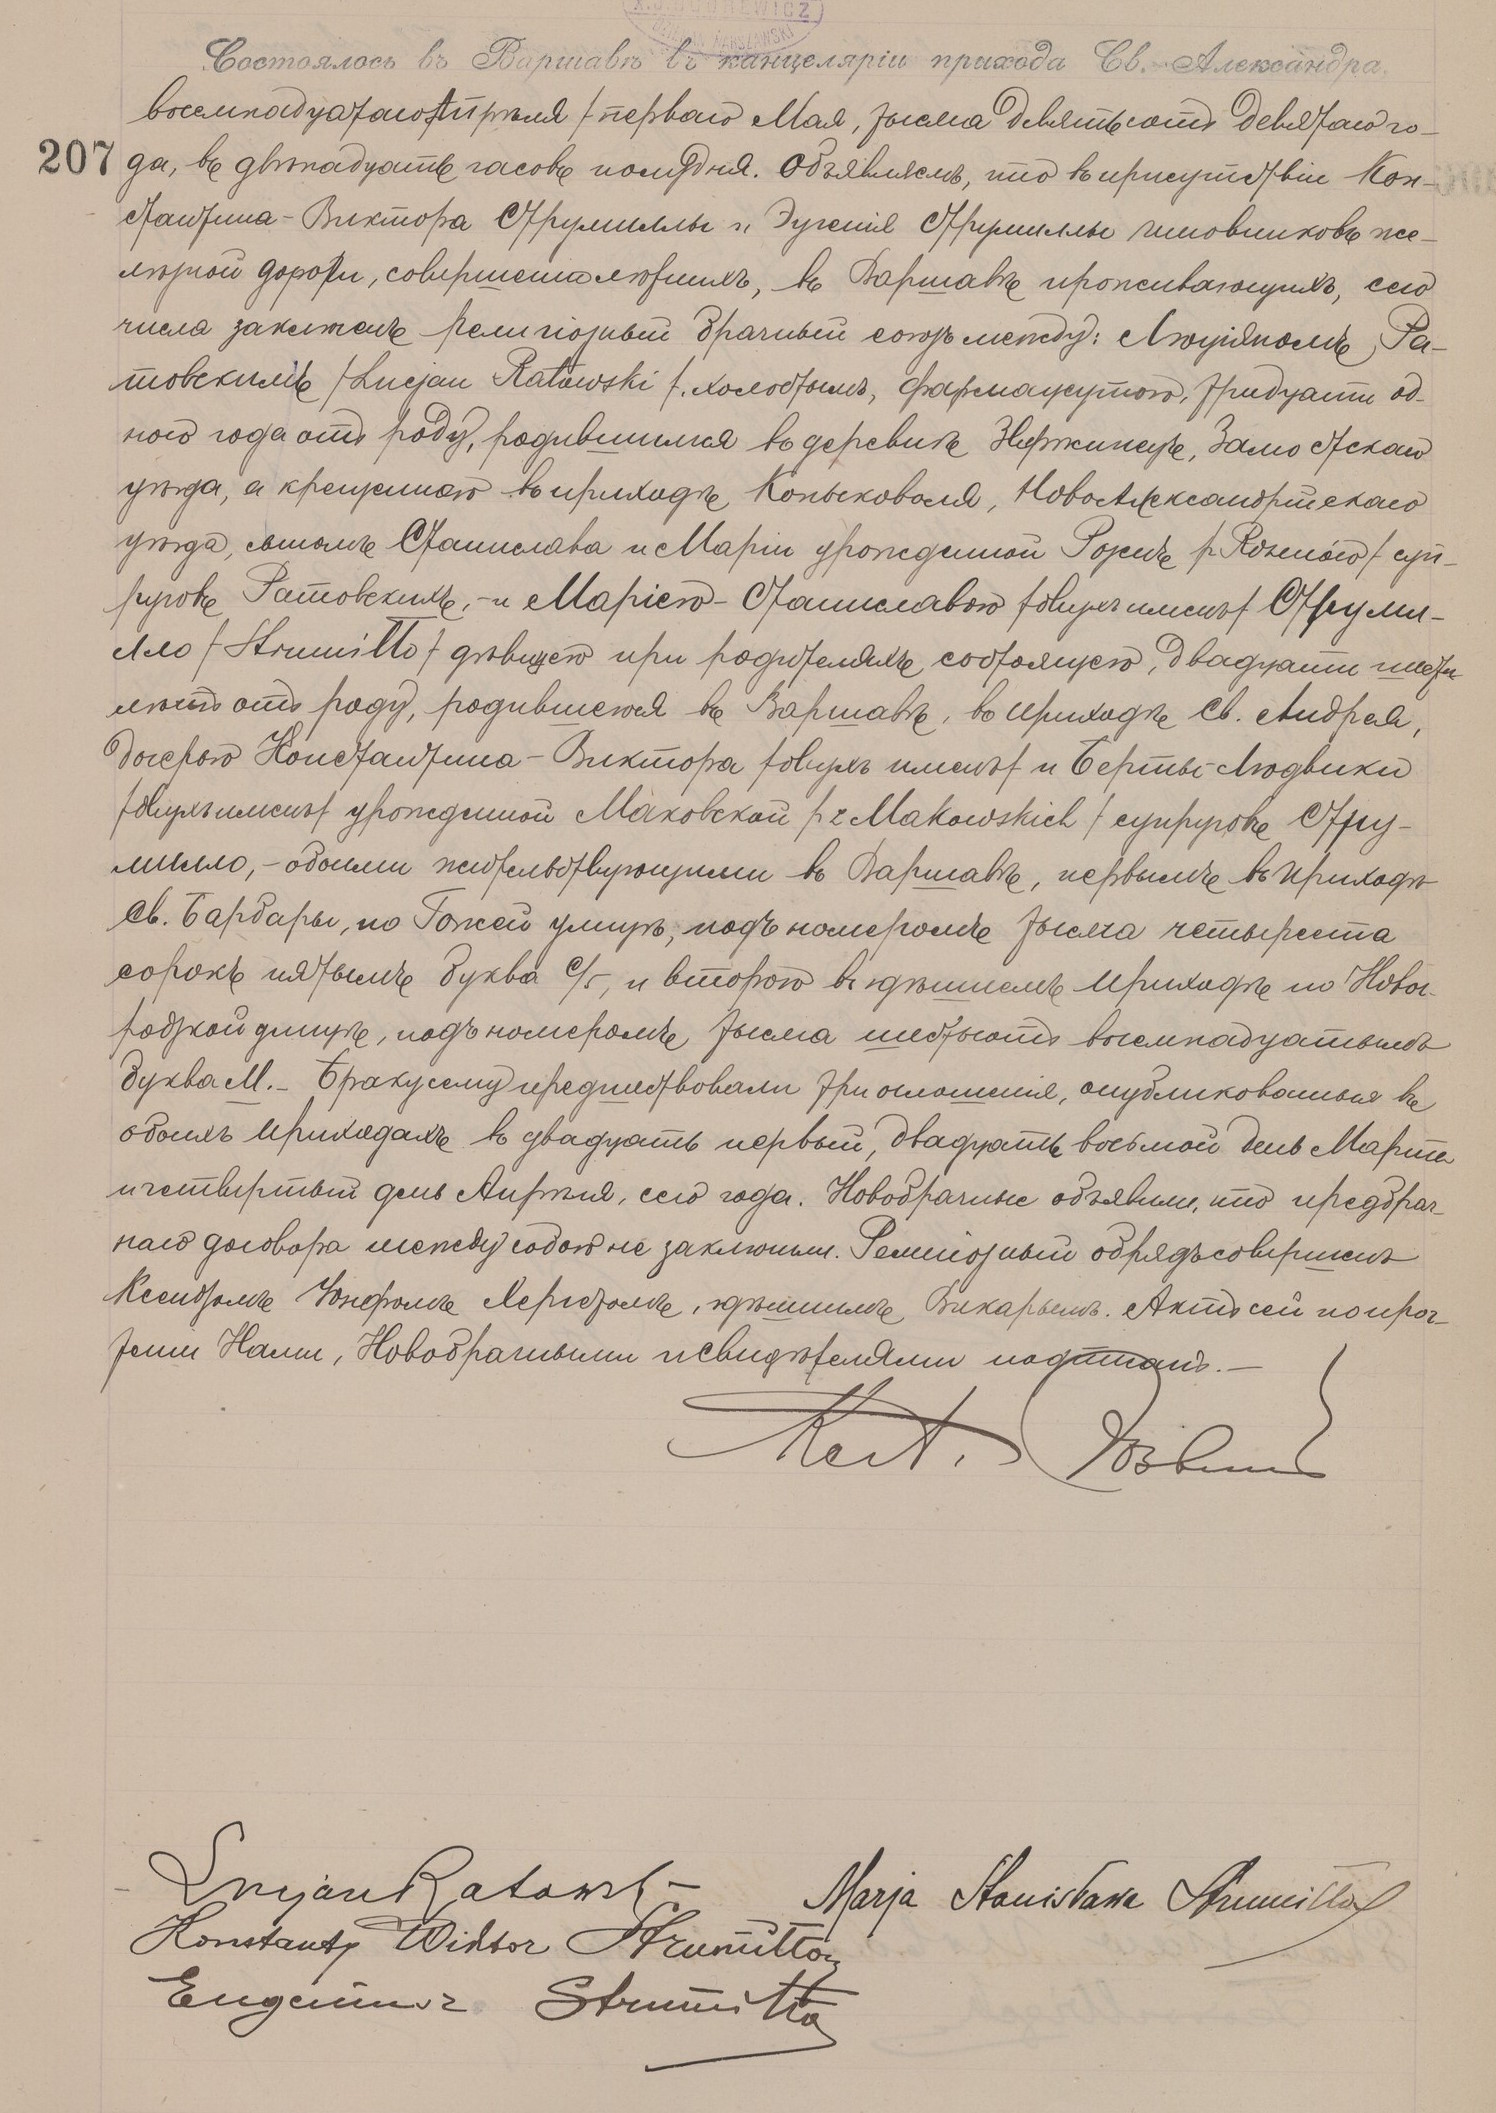 Состоялось въ Варшавѣ въ канцеляріи прихода Св. Александра
восемнадцатаго Апрѣля / перваго Мая, тысяча девятьсотъ девятаго го-
207 да, въ двѣнадцать часовъ полудня. Объявляемъ, что въ присутствіи Кон-
стантина-Виктора Струмиллы и Эугенія Струмиллы чиновниковъ же-
лѣзной дороги, совершеннолѣтнихъ, въ Варшавѣ проживающихъ, сего
числа заключенъ религіозный брачный союзъ между: Люціяномъ Ра-
товскимъ /Lucjan Ratowski/, холостымъ, фармацеутомъ, тридцати од-
ного года отъ роду, родившимся въ деревнѣ Замостскаго
уѣзда, а крещеннымъ въ приходѣ Коньсковоля, Новоалександрійскаго
уѣзда, сыномъ Станислава и Маріи урожденной / суп-
руговъ Ратовскихъ, - и Маріею-Станиславою /двухъ именъ/ Струми-
лло /Strumiłło/ дѣвицею при родителяхъ состоящею, двадцати шести
лѣтъ отъ роду, родившеюся въ Варшавѣ, въ приходѣ Св. Андрея,
дочерью Константина-Виктора /двухъ именъ/ и Берты-Людвики
/двухъ именъ/ урожденной Маковской /z Makowskich/ супруговъ Стру-
милло, - обоими жительствующими въ Варшавѣ, первымъ въ приходѣ
Св. Барбары, по Гожей улицѣ, подъ номеромъ тысяча четыреста
сорокъ пятымъ буква и второю въ здѣшнемъ приходѣ по Новог-
родзкой улицѣ, подъ номеромъ тысяча шестьсотъ восемнадцатымъ
буква М. - Браку сему предшествовали три оглашенія, опубликованныя въ
обоихъ приходахъ въ двадцать первый, двадцать восьмой день Марта
и четвертый день Апрѣля, сего года. Новобрачные объявили, что предбрач-
наго договора между собою не заключили. Религіозный обрядъ совершенъ
Ксендзомъ здѣшнимъ Викарьемъ. Актъ сей по проч-
теніи Нами, Новобрачными и свидѣтелями подписанъ. -
Lucjan Ratowski Marja Stanisława Strumiłło
Konstanty Wiktor Strumiłło
Eugeniusz Strumiłło